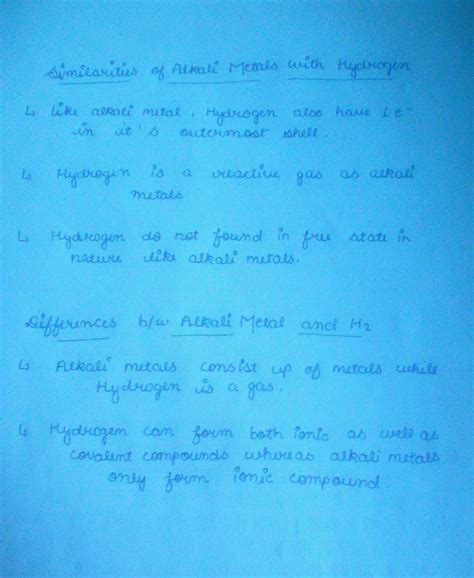 Similarities of Alkali Metals with Hydrogen
↳ Like alkali metal, Hydrogen also have 1e⁻
in it's outermost shell.
↳ Hydrogen is a reactive gas as alkali
metals
↳ Hydrogen do not found in free state in
nature like alkali metals.
Differences b/w Alkali Metal and H2
↳ Alkali metals consist up of metals while
Hydrogen is a gas.
↳ Hydrogen can form both ionic as well as
covalent compounds whereas alkali metals
only form ionic compound.